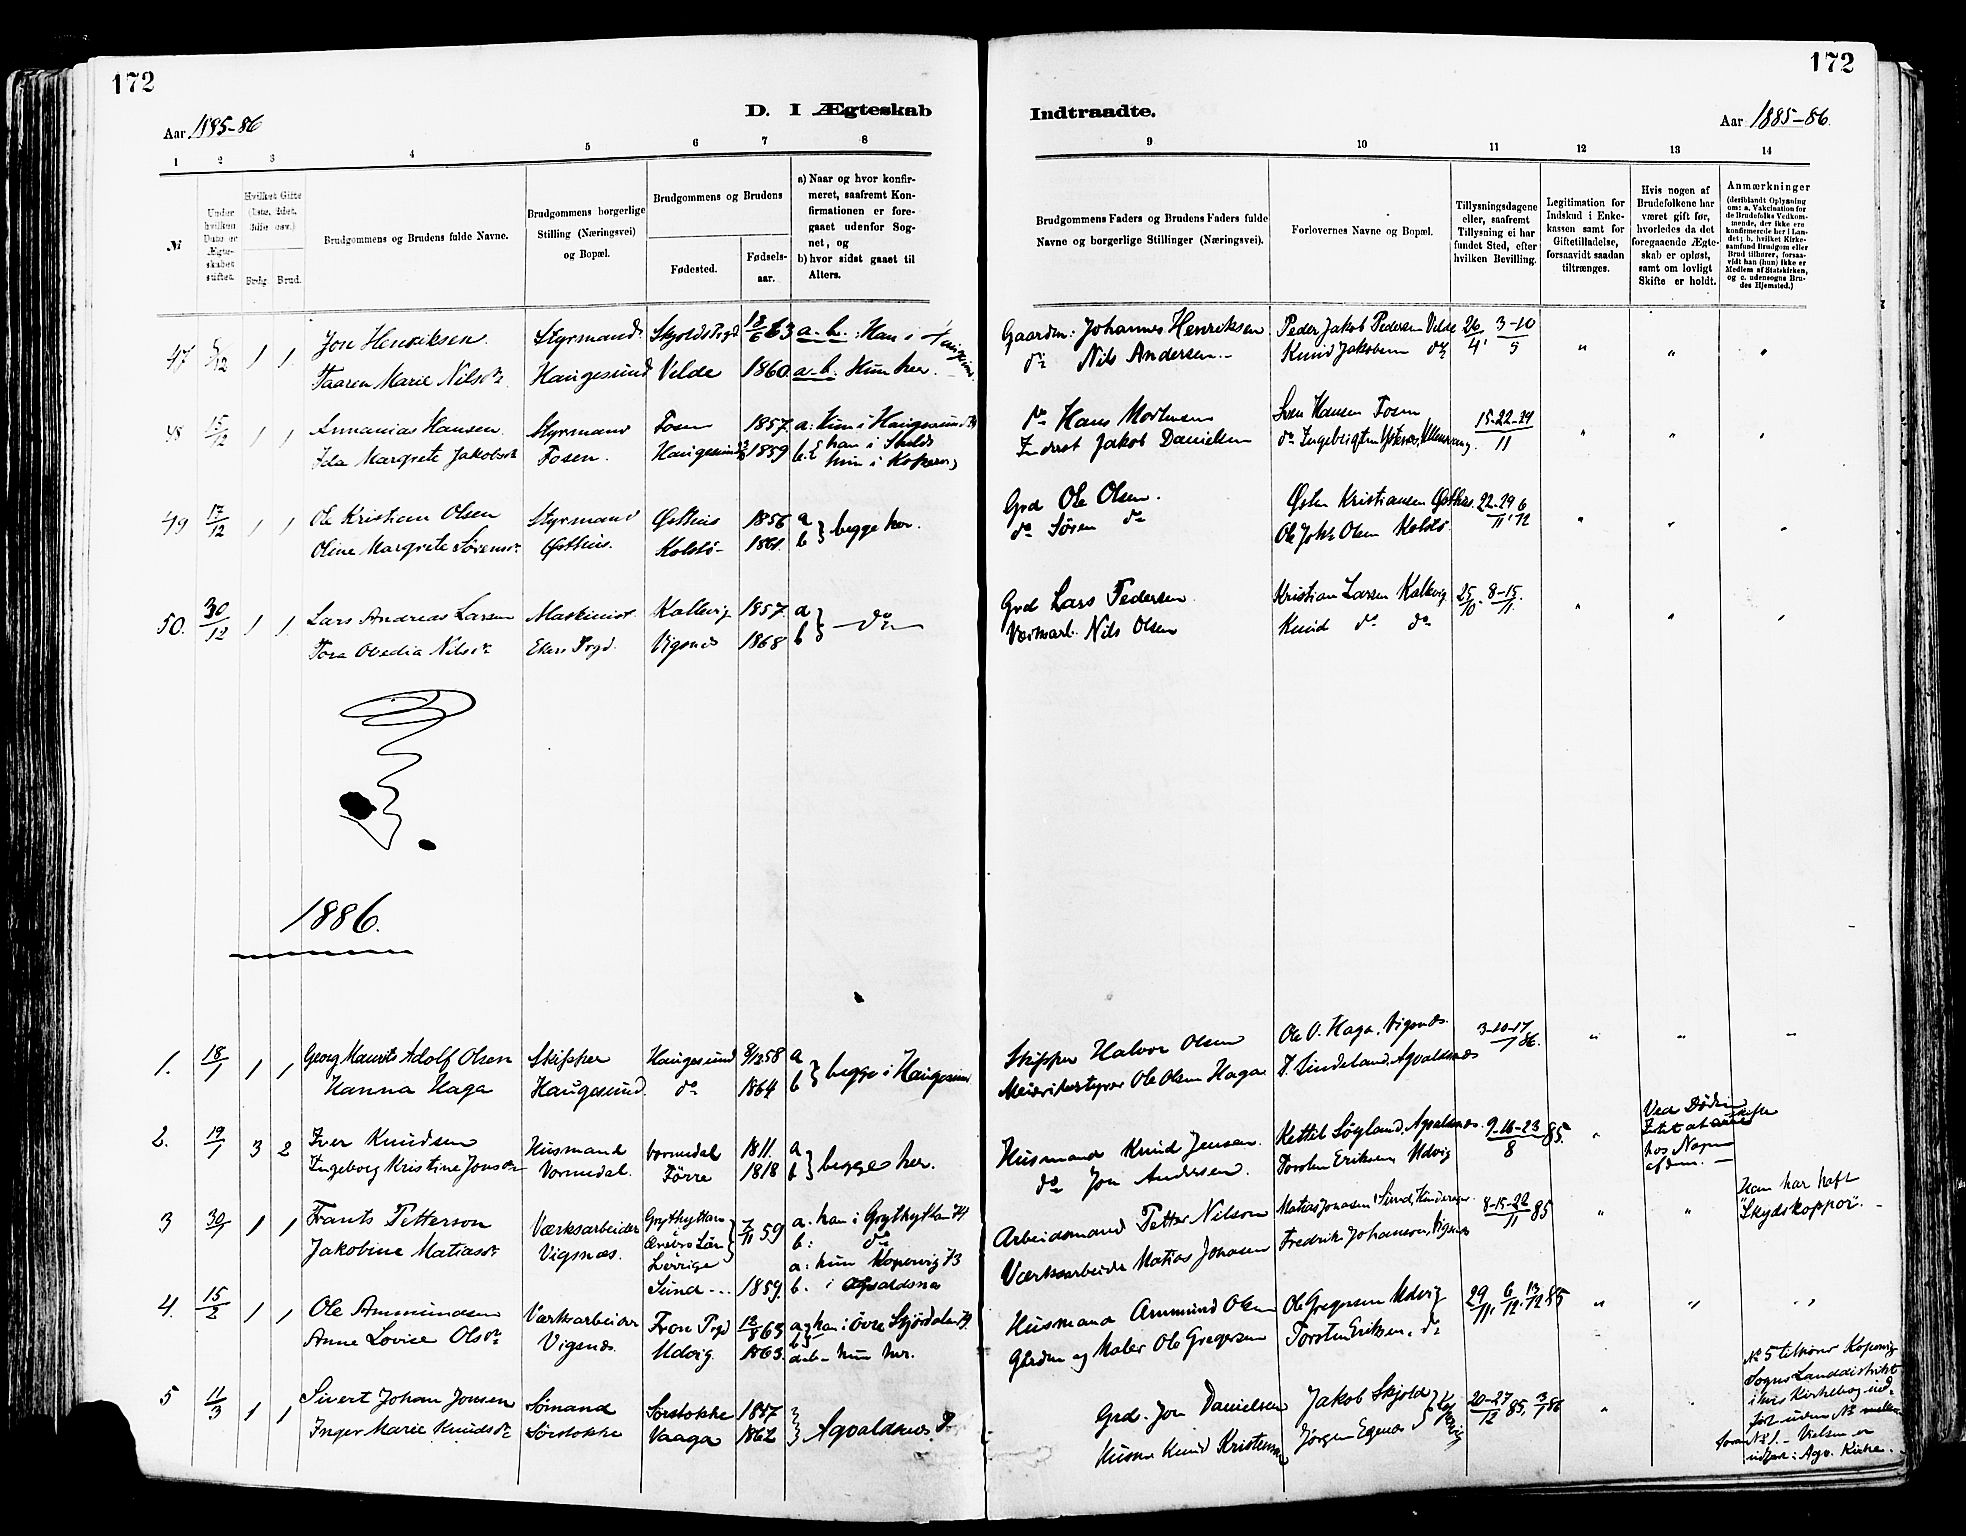 172
172
D. I Ægteskab Indtraadte.
Aar 1885-86
Aar 1885-86.
1 2 3 4 5 6 7 8 9 10 11 12 13 14
№
Under hvilken Dato er Ægteskabet stiftet.
Hvilket Gifte (1ste, 2det, 3die osv.)
Brdg. Brud.
Brudgommens og Brudens fulde Navne.
Brudgommens borgerlige Stilling (Næringsvei) og Bopæl.
Brudgommens og Brudens
Fødested.
Fødselsaar.
a) Naar og hvor konfirmeret, saafremt Konfirmationen er foregaaet udenfor Sognet, og
b) hvor sidst gaaet til Alters.
Brudgommens Faders og Brudens Faders fulde Navne og borgerlige Stillinger (Næringsvei).
Forlovernes Navne og Bopæl.
Tillysningsdagene eller, saafremt Tillysning ei har fundet Sted, efter hvilken Bevilling.
Legitimation for Indskud i Enkekassen samt for Giftetilladelse, forsaavidt saadan tiltrænges.
Hvis nogen af Brudefolkene har været gift før, hvorledes da det foregaaende Ægteskab er opløst, samt om lovligt Skifte er holdt.
Anmærkninger (deriblandt Oplysning om: a. Vakcination for de Brudefolks Vedkommende, der ikke ere konfirmerede her i Landet; b. hvilket Kirkesamfund Brudgom eller Brud tilhører, forsaavidt han (hun) ikke er Medlem af Statskirken, og c. udensogns Brudes Hjemsted.)
47 1 1 Jon Henriksen Styrmand Skjolds Prgd 63 a-b. Han i Gaardm: Johannes Henriksen Peder Jakob Pedersen Velde 26/4, 3-10/5 "
Maren Marie Nilsdr Haugesund Velde 1860 a-b. Hun her. do Nils Andersen Knud Jakobsen do
48 15/12 1 1 Annanias Hansen Styrmand Fosen 1857 a: hun i Haugesund do Hans Mortensen Sven Hansen Fosen 15-22-29/11 "
Ida Margrete Jakobsdr Fosen. Haugesund 1859 b. { han i Skulds hun i Kopervig Jakob Danielsen
49 17/12 1 1 Ole Kristian Olsen Styrmand Østhus 1856 a b } begge her. Grd Ole Olsen. Østen Kristiansen Østhus 22-29/11, 6/12 "
Oline Margrete Sørensdr Østhus. Kolstø 1861 do Søren do Ole Johs Olsen Kolstø
50. 30/12 1 1 Lars Andreas Larsen Maskinist Kallevig 1857 a b } do Grd Lars Pedersen Kristian Larsen Kallevig 25/10, 8-15/11 "
Tora Ovedia Nilsdr Ekers Prgd. Vigsnes 1868 Nils Olsen Knud do do
1886.
1. 18/1 1 1 Georg Maurits Adolf Olsen Skipper Haugesund 9/12 58 a b } begge i Haugesund Skipper Halvor Olsen Ole O. Haga, Vigsnæs 3-10-17/1 86. "
Hanna Haga Haugesund. do 1864 Ole Olsen Haga Lindeland, Agvaldsnæs
2. 19/1 3 2 Iver Knudsen Husmand Vormedal 1811. a b } begge her. Husmand Knud Jensen. Kettil Søyland, Agvaldsnæs. 9-16-23/8 85. " Ved Døden
Ingeborg Kristine Jonsdr Vormedal. Førre 1818 do Jon Andersen. Torsten Eriksen, Udvig hos Nogen af dem.
3 30/1 1 1 Frants Petterson Værksarbeider Grythyttan Ørebro Län Sverige 7/11 59 a: han i Grythyttan 74 b: do Arbeidsmand Petter Nilson Matias Jonasen, Sund, 8-15-22/11 85 " " Han har haft "Skydskoppor".
Jakobine Matiasdr Vigsnæs. Sund 1859. a: hun Kopervig 73 b. i Agvaldsnæs Værksarbeider Matias Jonasen Fredrik Johansen, Vigsnæs
4. 15/2 1 1 Ole Ammundsen Værksarbeider Fron Prgd 13/8 63 a han i øvre Stjørdalen 79. Husmand Ammund Olsen Ole Gregersen Udvig 29/11, 6/12, 13/12 85 " "
Anne Lovise Olsdr Vigsnæs Udvig. 1863. hun her. Gårdm og Maler Ole Gregersen Torsten Eriksen, do
5 11/3 1 1 Sivert Johan Jonsen Sømand Sørstokke 1857 } Agvaldsnæs. Grd. Jon Danielsen Jakob Skjold 20-27/12 85, 3/1 86 " No 5 tilhører Kopervig Sogns Landdistrikt i hvis Kirkebog ind-
Inger Marie Knudsdr Sørstokke Vaaga 1862 Husm Knud Kristensen Jørgen Egenæs ført uden No mellem No 1. - Vielsen er udført i Agv. Kirke.